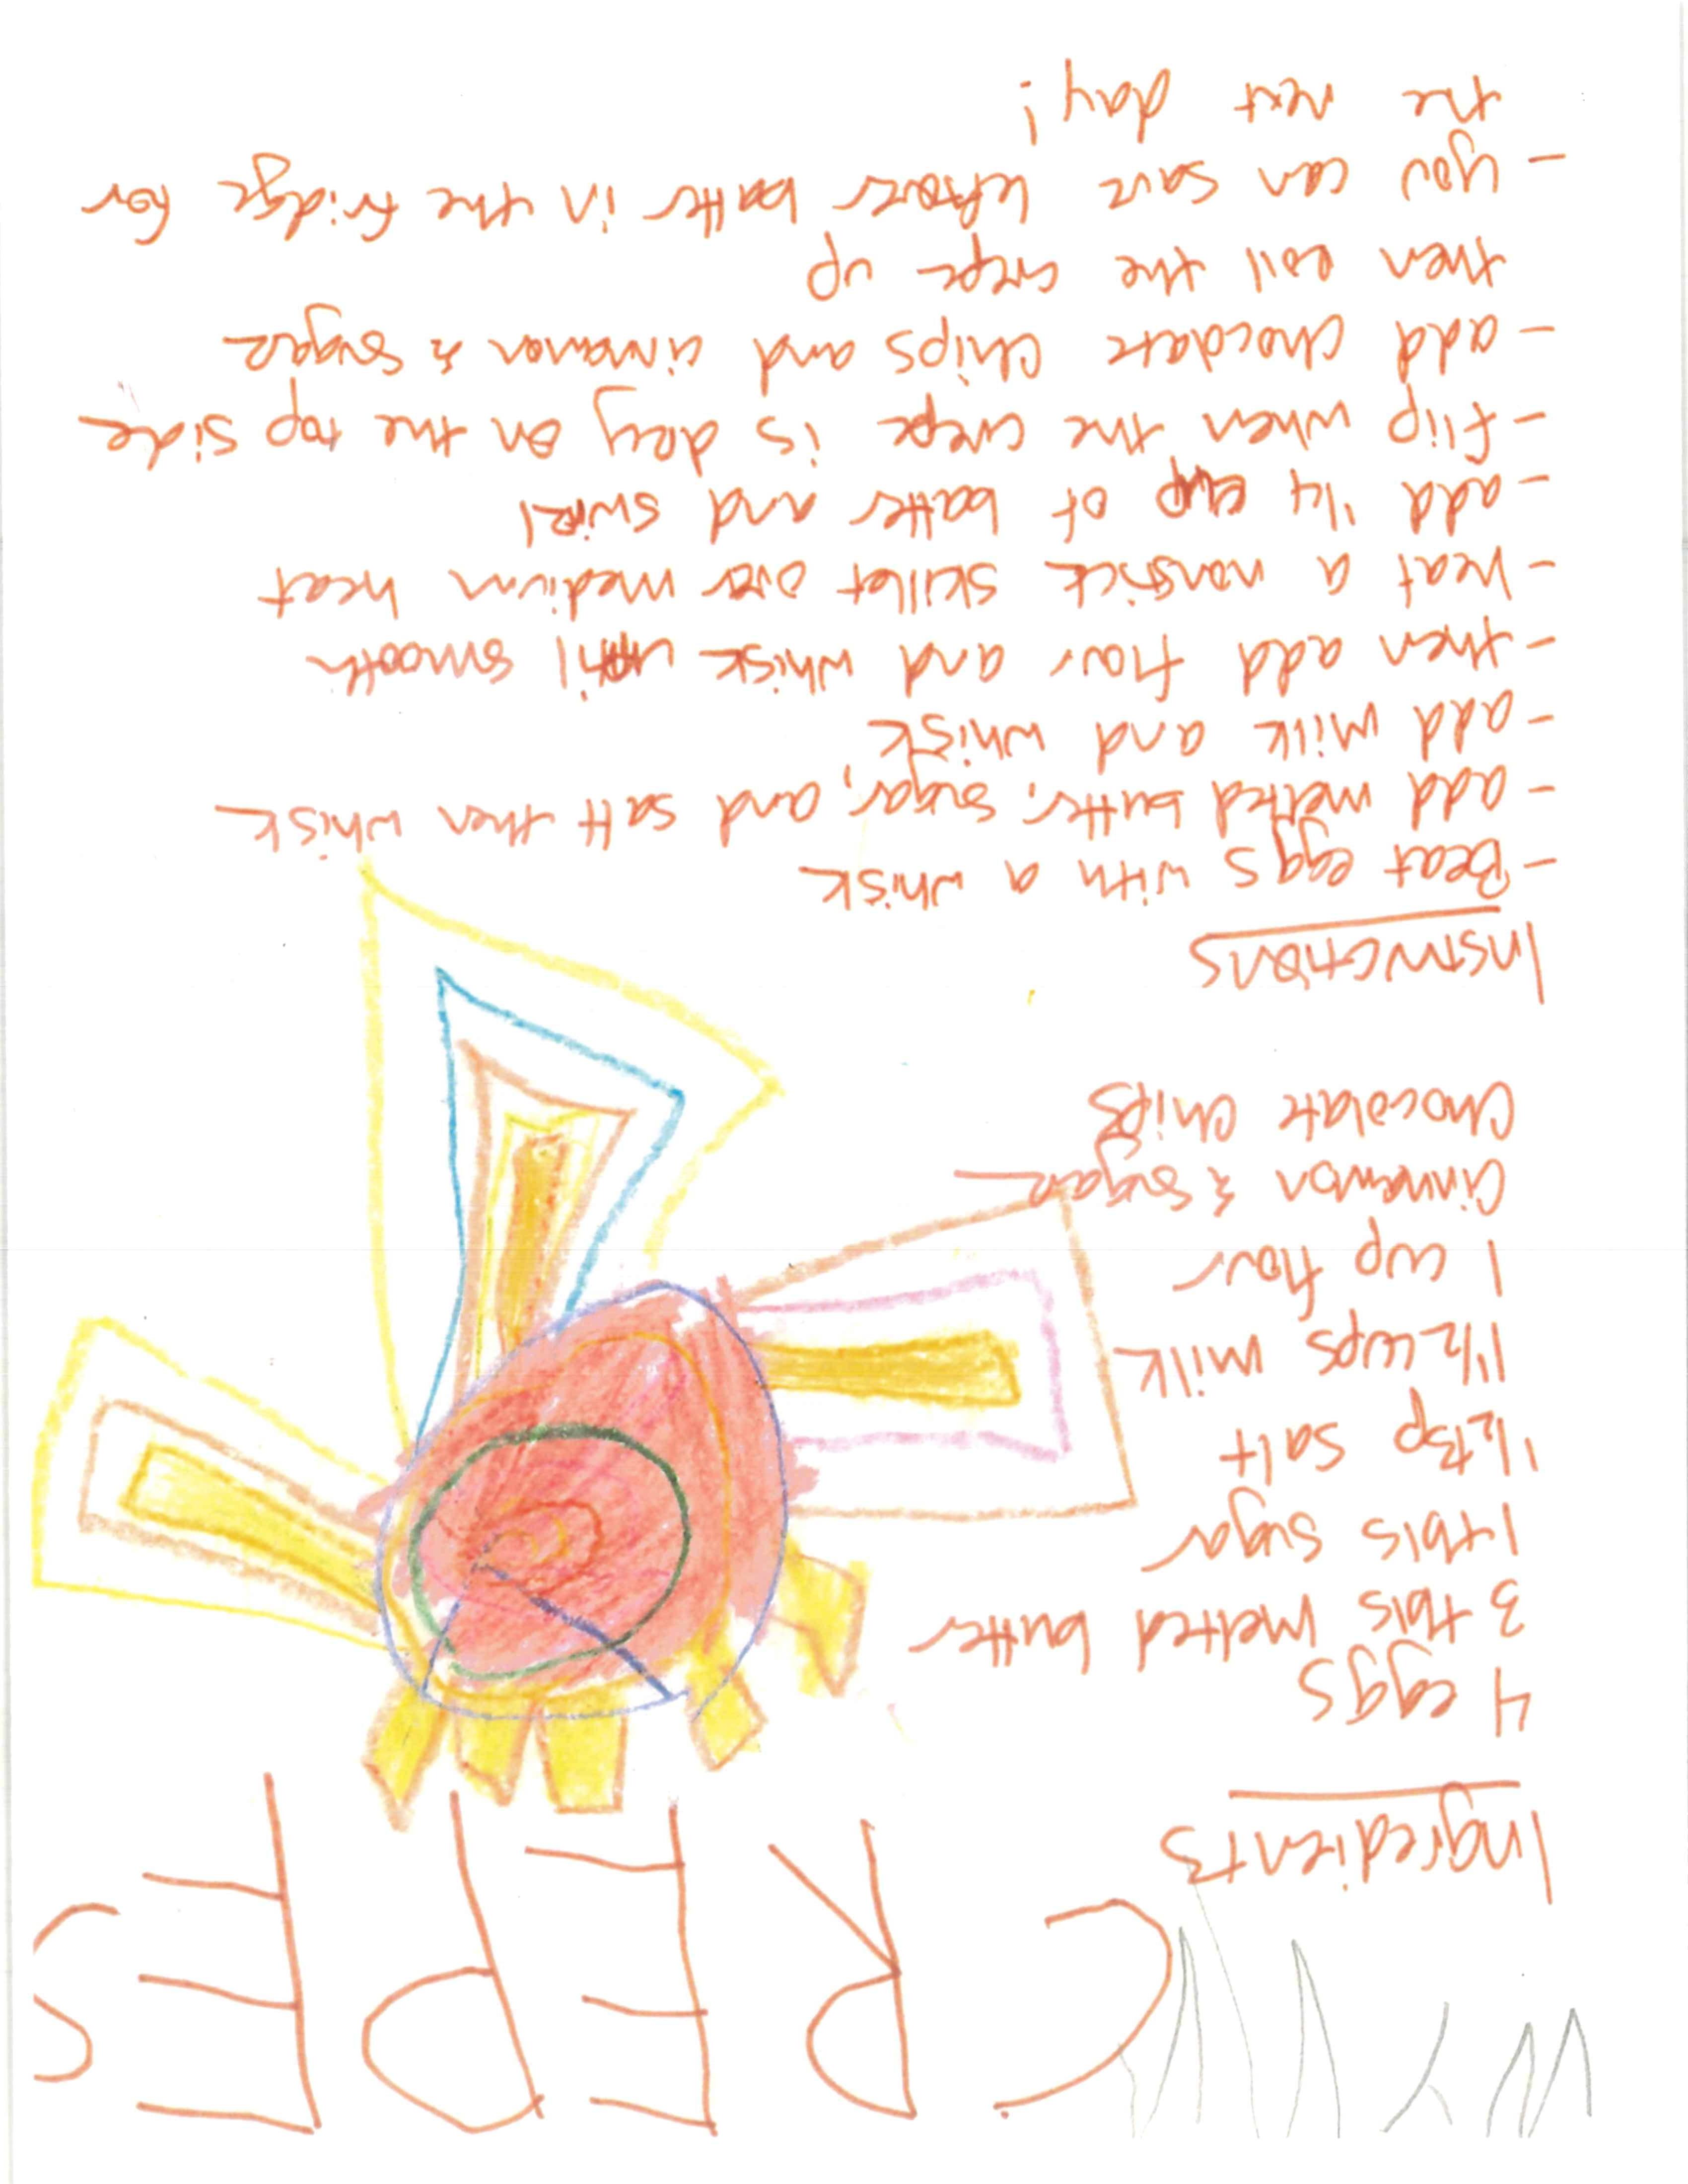 CREPES
Ingredients
4 eggs
3 tbls melted butter
1 tbls sugar
1/2 tsp salt
1 1/2 cups milk
1 cup flour
Cinnamon & sugar
Chocolate chips
Instructions
- Beat eggs with a whisk
- add melted butter, sugar, and salt then whisk
- add milk and whisk
- then add flour and whisk until smooth
- heat a nonstick skillet over medium heat
- add 1/4 cup of batter and swirl
- flip when the crepe is dry on the top side
- add chocolate chips and cinnamon & sugar
then roll the crepe up
- you can save leftover batter in the fridge for
the next day!